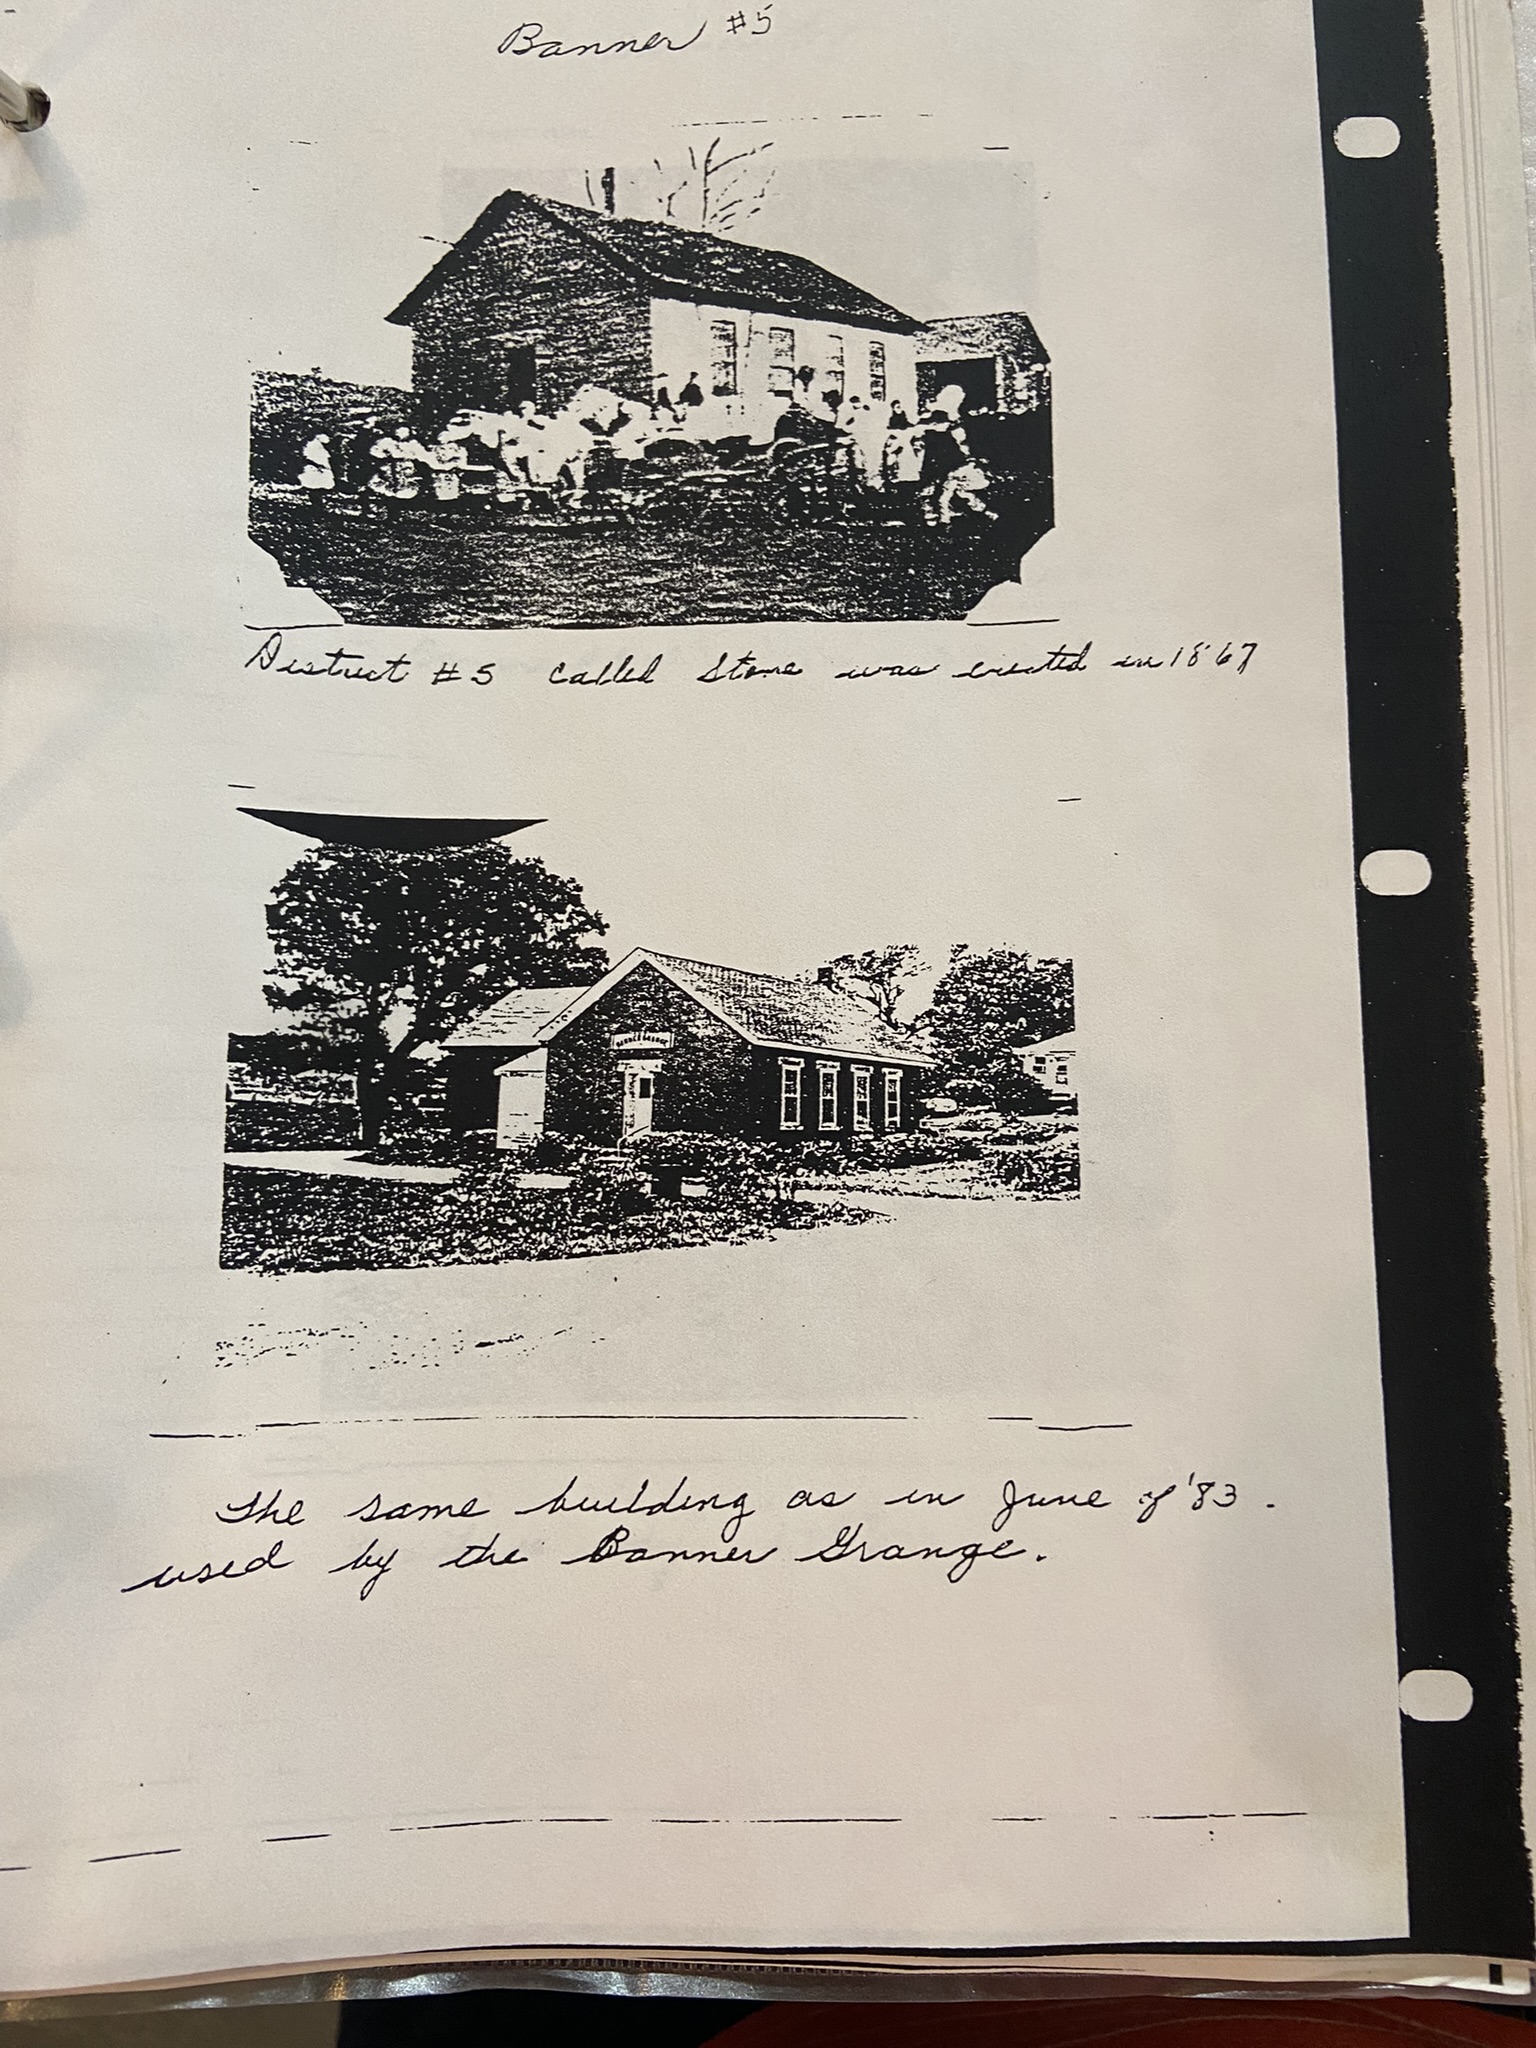 Banner #5
District #5 called Stone was erected in 1867
BANNER GRANGE
The same building as in June of '83.
used by the Banner Grange.